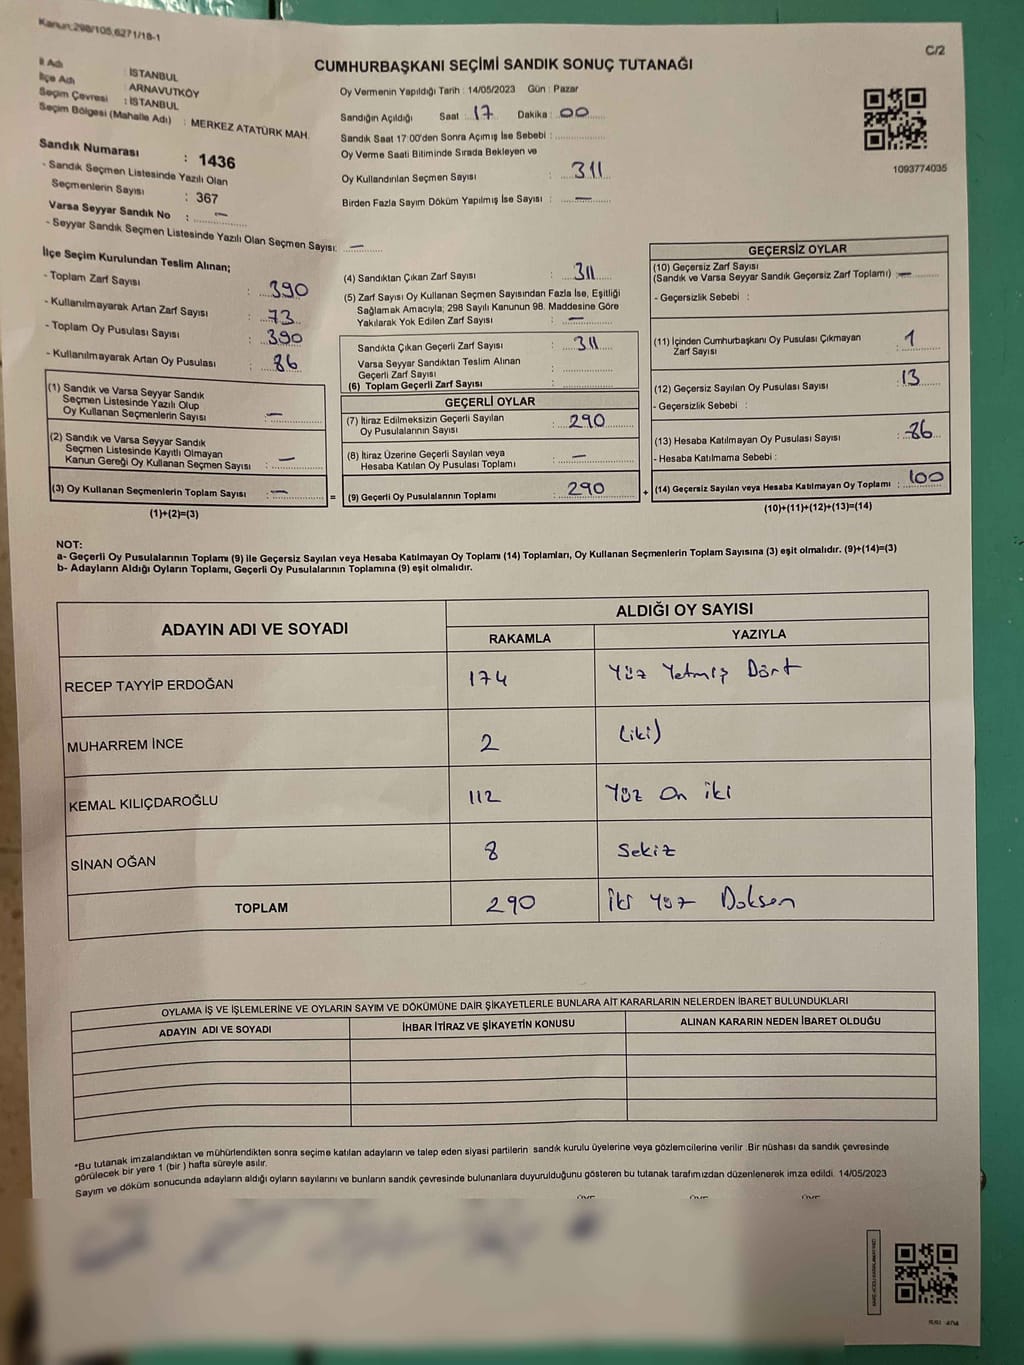 Kanun:298/105,6271/18-1
C/2
CUMHURBAŞKANI SEÇİMİ SANDIK SONUÇ TUTANAĞI
İl Adı : İSTANBUL
İlçe Adı : ARNAVUTKÖY
Seçim Çevresi : İSTANBUL
Seçim Bölgesi (Mahalle Adı) : MERKEZ ATATÜRK MAH.
Sandık Numarası : 1436
- Sandık Seçmen Listesinde Yazılı Olan
Seçmenlerin Sayısı : 367
Varsa Seyyar Sandık No : —
- Seyyar Sandık Seçmen Listesinde Yazılı Olan Seçmen Sayısı: —
Oy Vermenin Yapıldığı Tarih : 14/05/2023 Gün : Pazar
Sandığın Açıldığı Saat : 17 Dakika : 00
Sandık Saat 17:00'den Sonra Açımış İse Sebebi :
Oy Verme Saati Bitiminde Sırada Bekleyen ve
Oy Kullandırılan Seçmen Sayısı : 311
Birden Fazla Sayım Döküm Yapılmış İse Sayısı : —
1093774035
İlçe Seçim Kurulundan Teslim Alınan;
- Toplam Zarf Sayısı : 390
- Kullanılmayarak Artan Zarf Sayısı : 73
- Toplam Oy Pusulası Sayısı : 390
- Kullanılmayarak Artan Oy Pusulası : 86
(1) Sandık ve Varsa Seyyar Sandık
Seçmen Listesinde Yazılı Olup
Oy Kullanan Seçmenlerin Sayısı : —
(2) Sandık ve Varsa Seyyar Sandık
Seçmen Listesinde Kayıtlı Olmayan
Kanun Gereği Oy Kullanan Seçmen Sayısı : —
(3) Oy Kullanan Seçmenlerin Toplam Sayısı : — =
(1)+(2)=(3)
(4) Sandıktan Çıkan Zarf Sayısı : 311
(5) Zarf Sayısı Oy Kullanan Seçmen Sayısından Fazla İse, Eşitliği
Sağlamak Amacıyla; 298 Sayılı Kanunun 98. Maddesine Göre
Yakılarak Yok Edilen Zarf Sayısı : —
Sandıkta Çıkan Geçerli Zarf Sayısı : 311
Varsa Seyyar Sandıktan Teslim Alınan
Geçerli Zarf Sayısı :
(6) Toplam Geçerli Zarf Sayısı :
GEÇERLİ OYLAR
(7) İtiraz Edilmeksizin Geçerli Sayılan
Oy Pusulalarının Sayısı : 290
(8) İtiraz Üzerine Geçerli Sayılan veya
Hesaba Katılan Oy Pusulası Toplamı : —
(9) Geçerli Oy Pusulalarının Toplamı : 290 +
GEÇERSİZ OYLAR
(10) Geçersiz Zarf Sayısı
(Sandık ve Varsa Seyyar Sandık Geçersiz Zarf Toplamı) : —
- Geçersizlik Sebebi :
(11) İçinden Cumhurbaşkanı Oy Pusulası Çıkmayan
Zarf Sayısı : 1
(12) Geçersiz Sayılan Oy Pusulası Sayısı : 13
- Geçersizlik Sebebi :
(13) Hesaba Katılmayan Oy Pusulası Sayısı : 86
- Hesaba Katılmama Sebebi :
(14) Geçersiz Sayılan veya Hesaba Katılmayan Oy Toplamı : 100
(10)+(11)+(12)+(13)=(14)
NOT:
a- Geçerli Oy Pusulalarının Toplamı (9) ile Geçersiz Sayılan veya Hesaba Katılmayan Oy Toplamı (14) Toplamları, Oy Kullanan Seçmenlerin Toplam Sayısına (3) eşit olmalıdır. (9)+(14)=(3)
b- Adayların Aldığı Oyların Toplamı, Geçerli Oy Pusulalarının Toplamına (9) eşit olmalıdır.
ADAYIN ADI VE SOYADI
ALDIĞI OY SAYISI
RAKAMLA YAZIYLA
RECEP TAYYİP ERDOĞAN 174 Yüz Yetmiş Dört
MUHARREM İNCE 2 (iki)
KEMAL KILIÇDAROĞLU 112 Yüz On iki
SİNAN OĞAN 8 Sekiz
TOPLAM 290 İki Yüz Doksan
OYLAMA İŞ VE İŞLEMLERİNE VE OYLARIN SAYIM VE DÖKÜMÜNE DAİR ŞİKAYETLERLE BUNLARA AİT KARARLARIN NELERDEN İBARET BULUNDUKLARI
ADAYIN ADI VE SOYADI İHBAR İTİRAZ VE ŞİKAYETİN KONUSU ALINAN KARARIN NEDEN İBARET OLDUĞU
*Bu tutanak imzalandıktan ve mühürlendikten sonra seçime katılan adayların ve talep eden siyasi partilerin sandık kurulu üyelerine veya gözlemcilerine verilir .Bir nüshası da sandık çevresinde
görülecek bir yere 1 (bir ) hafta süreyle asılır.
Sayım ve döküm sonucunda adayların aldığı oyların sayılarını ve bunların sandık çevresinde bulunanlara duyurulduğunu gösteren bu tutanak tarafımızdan düzenlenerek imza edildi. 14/05/2023